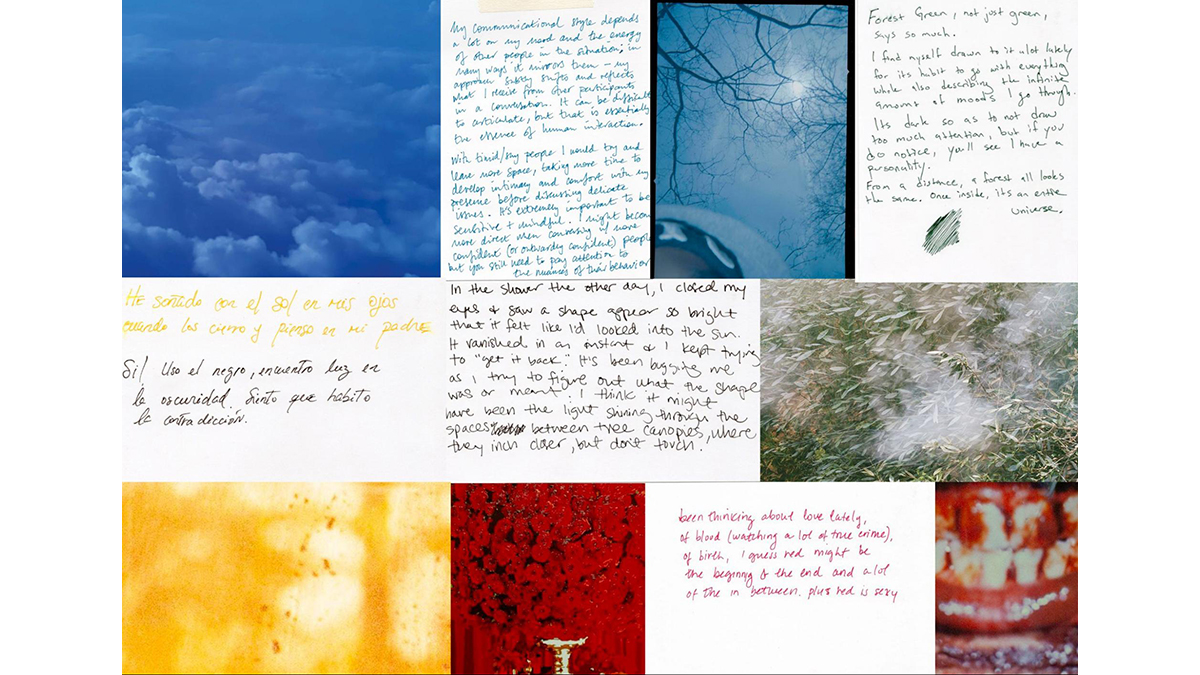 My communicational style depends
a lot on my mood and the energy
of other people in the situation; in
many ways it mirrors them – my
approach subtly shifts and reflects
what I receive from other participants
in a conversation. It can be difficult
to articulate, but that is essentially
the essence of human interaction.
With timid/shy people I would try and
leave more space, taking more time to
develop intimacy and comfort with my
presence before discussing delicate
issues. It's extremely important to be
sensitive + mindful. I might become
more direct when conversing w/ more
confident (or outwardly confident) people
but you still need to pay attention to
the nuances of their behavior
Forest Green, not just green,
says so much.
I find myself drawn to it alot lately
for its habit to go with everything
while also describing the infinite
amount of moods I go through.
Its dark so as to not draw
too much attention, but if you
do notice, you'll see I have a
personality.
From a distance, a forest all looks
the same. Once inside, it's an entire
universe.
HE soñado con el sol en mis ojos
cuando los cierro y pienso en mi padre
Si/ Uso el negro, encuentro luz en
la oscuridad. Siento que habito
la contradicción.
In the shower the other day, I closed my
eyes & saw a shape appear so bright
that it felt like I'd looked into the sun.
It vanished in an instant & I kept trying
to "get it back." It's been bugging me
as I try to figure out what the shape
was or meant. I think it might
have been the light shining through the
spaces between tree canopies, where
they inch closer, but don't touch.
been thinking about love lately,
of blood (watching a lot of true crime),
of birth, I guess red might be
the beginning & the end and a lot
of the in between. plus red is sexy